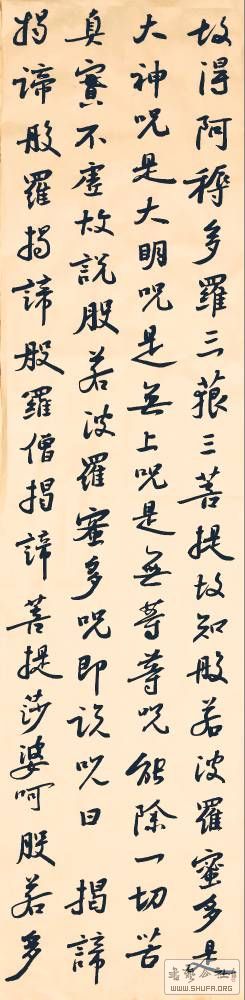 故得阿耨多羅三藐三菩提故知般若波羅蜜多是
大神咒是大明咒是無上咒是無等等咒能除一切苦
真實不虛故說般若波羅蜜多咒即說咒曰 揭諦
揭諦般羅揭諦般羅僧揭諦菩提莎婆呵般若多
WWW.SHUFA.ORG